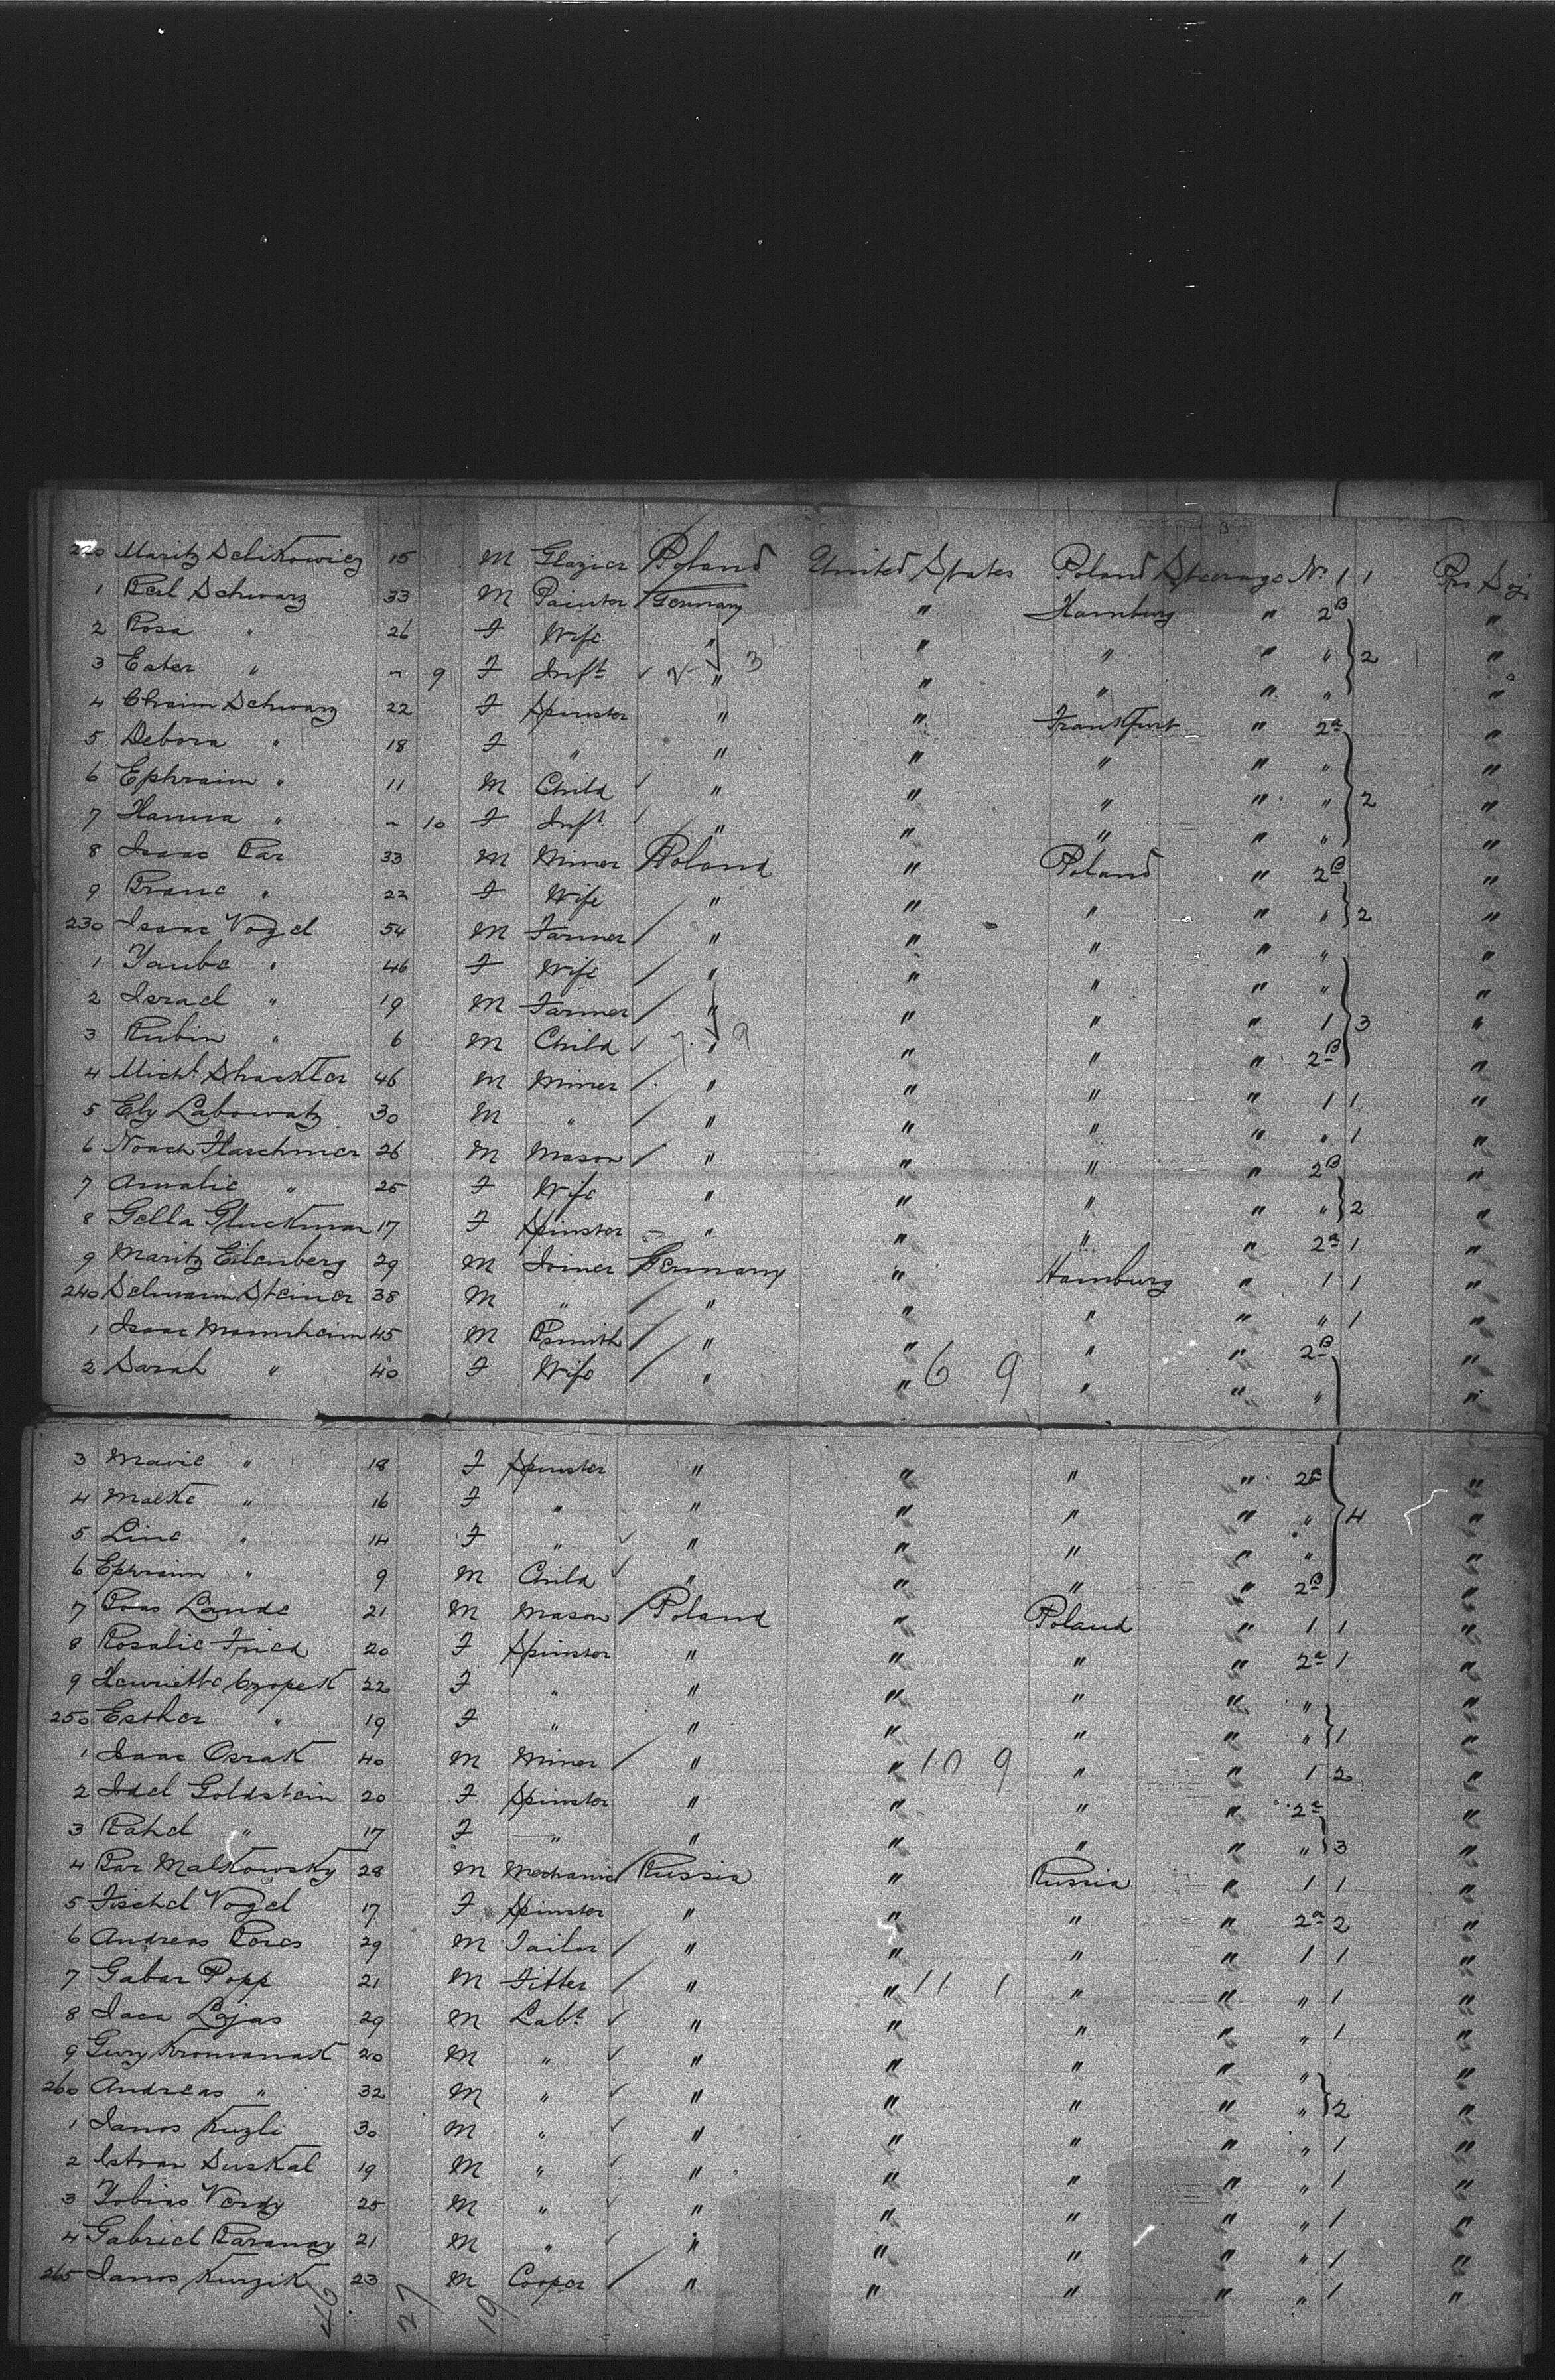 220 Maritz Selikowicz 15 M Glazier Poland United States Poland Steerage No 1 1 Pro Soj.
1 Berl Schwarz 33 M Painter Germany " Hamburg " 2B "
2 Rosa " 26 F Wife " " " " " 2 "
3 Ester " ~ 9 F Inft " 3 " " " " "
4 Chaim Schwarz 22 F Spinster " " Frankfurt " 2a "
5 Debora " 18 F " " " " " " "
6 Ephraim " 11 M Child " " " " " 2 "
7 Hanna " ~ 10 F Inft " " " " " "
8 Isaac Bar 33 M Miner Poland " Poland " 2B "
9 Brane " 22 F Wife " " " " " 2 "
230 Isaac Vogel 54 M Farmer " " " " " "
1 Taube " 46 F Wife " " " " " "
2 Israel " 19 M Farmer " " " " 1 3 "
3 Rubin " 6 M Child 7 " 9 " " " 2B "
4 Michl Shackter 46 M Miner " " " " 1 1 "
5 Ely Labowatz 30 M " " " " " " 1 "
6 Noach Flaschmer 26 M Mason " " " " 2B "
7 Amalie " 25 F Wife " " " " " 2 "
8 Gella Gluckman 17 F Spinster " " " " 2a 1 "
9 Maritz Eilenberg 29 M Joiner Germany " Hamburg " 1 1 "
240 Selmann Steiner 38 M " " " " " " 1 "
1 Isaac Mannheim 45 M Bsmith " " " " 2B "
2 Sarah " 40 F Wife " " 6 9 " " " "
3 Marie " 18 F Spinster " " " " 2a "
4 Malke " 16 F " " " " " " 4 "
5 Line " 14 F " " " " " " "
6 Ephraim " 9 M Child " " " " 2B "
7 Lande 21 M Mason Poland " Poland " 1 1 "
8 Rosalie Fried 20 F Spinster " " " " 2a 1 "
9 Henriette Czopek 22 F " " " " " " "
250 Esther " 19 F " " " " " " 1 "
1 Isaac Osrak 40 M Miner " " 10 9 " " 1 2 "
2 Idel Goldstein 20 F Spinster " " " " 2a "
3 Rahel " 17 F " " " " " " 3 "
4 Bar Malkowsky 28 M Mechanic Russia " Russia " 1 1 "
5 Fischel Vogel 17 F Spinster " " " " 2a 2 "
6 Andreas 29 M Tailor " " " " 1 1 "
7 Gabor Popp 21 M Fitter " " 11 1 " " " 1 "
8 Lajas 29 M Labr " " " " " 1 "
9 Kromanak 20 M " " " " " " "
260 Andreas " 32 M " " " " " " 2 "
1 Janos Kuzli 30 M " " " " " " 1 "
2 Istvan Suskal 19 M " " " " " " 1 "
3 Tobias Verdy 25 M " " " " " " 1 "
4 Gabriel Baranay 21 M " " " " " " 1 "
265 Janos Kurzik 23 M Cooper " " " " " 1 "
46 27 19